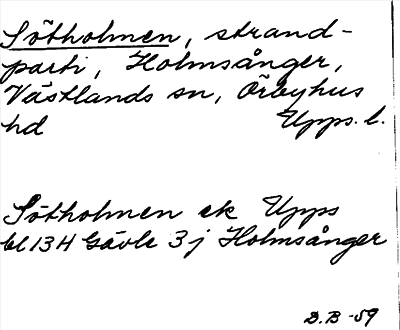 Sötholmen, strand-
parti, Holmsånger,
Västlands sn, Örbyhus
hd Upps. l.
Sötholmen ek Upps
bl 13 H Gävle 3 j Holmsånger
D.B -59